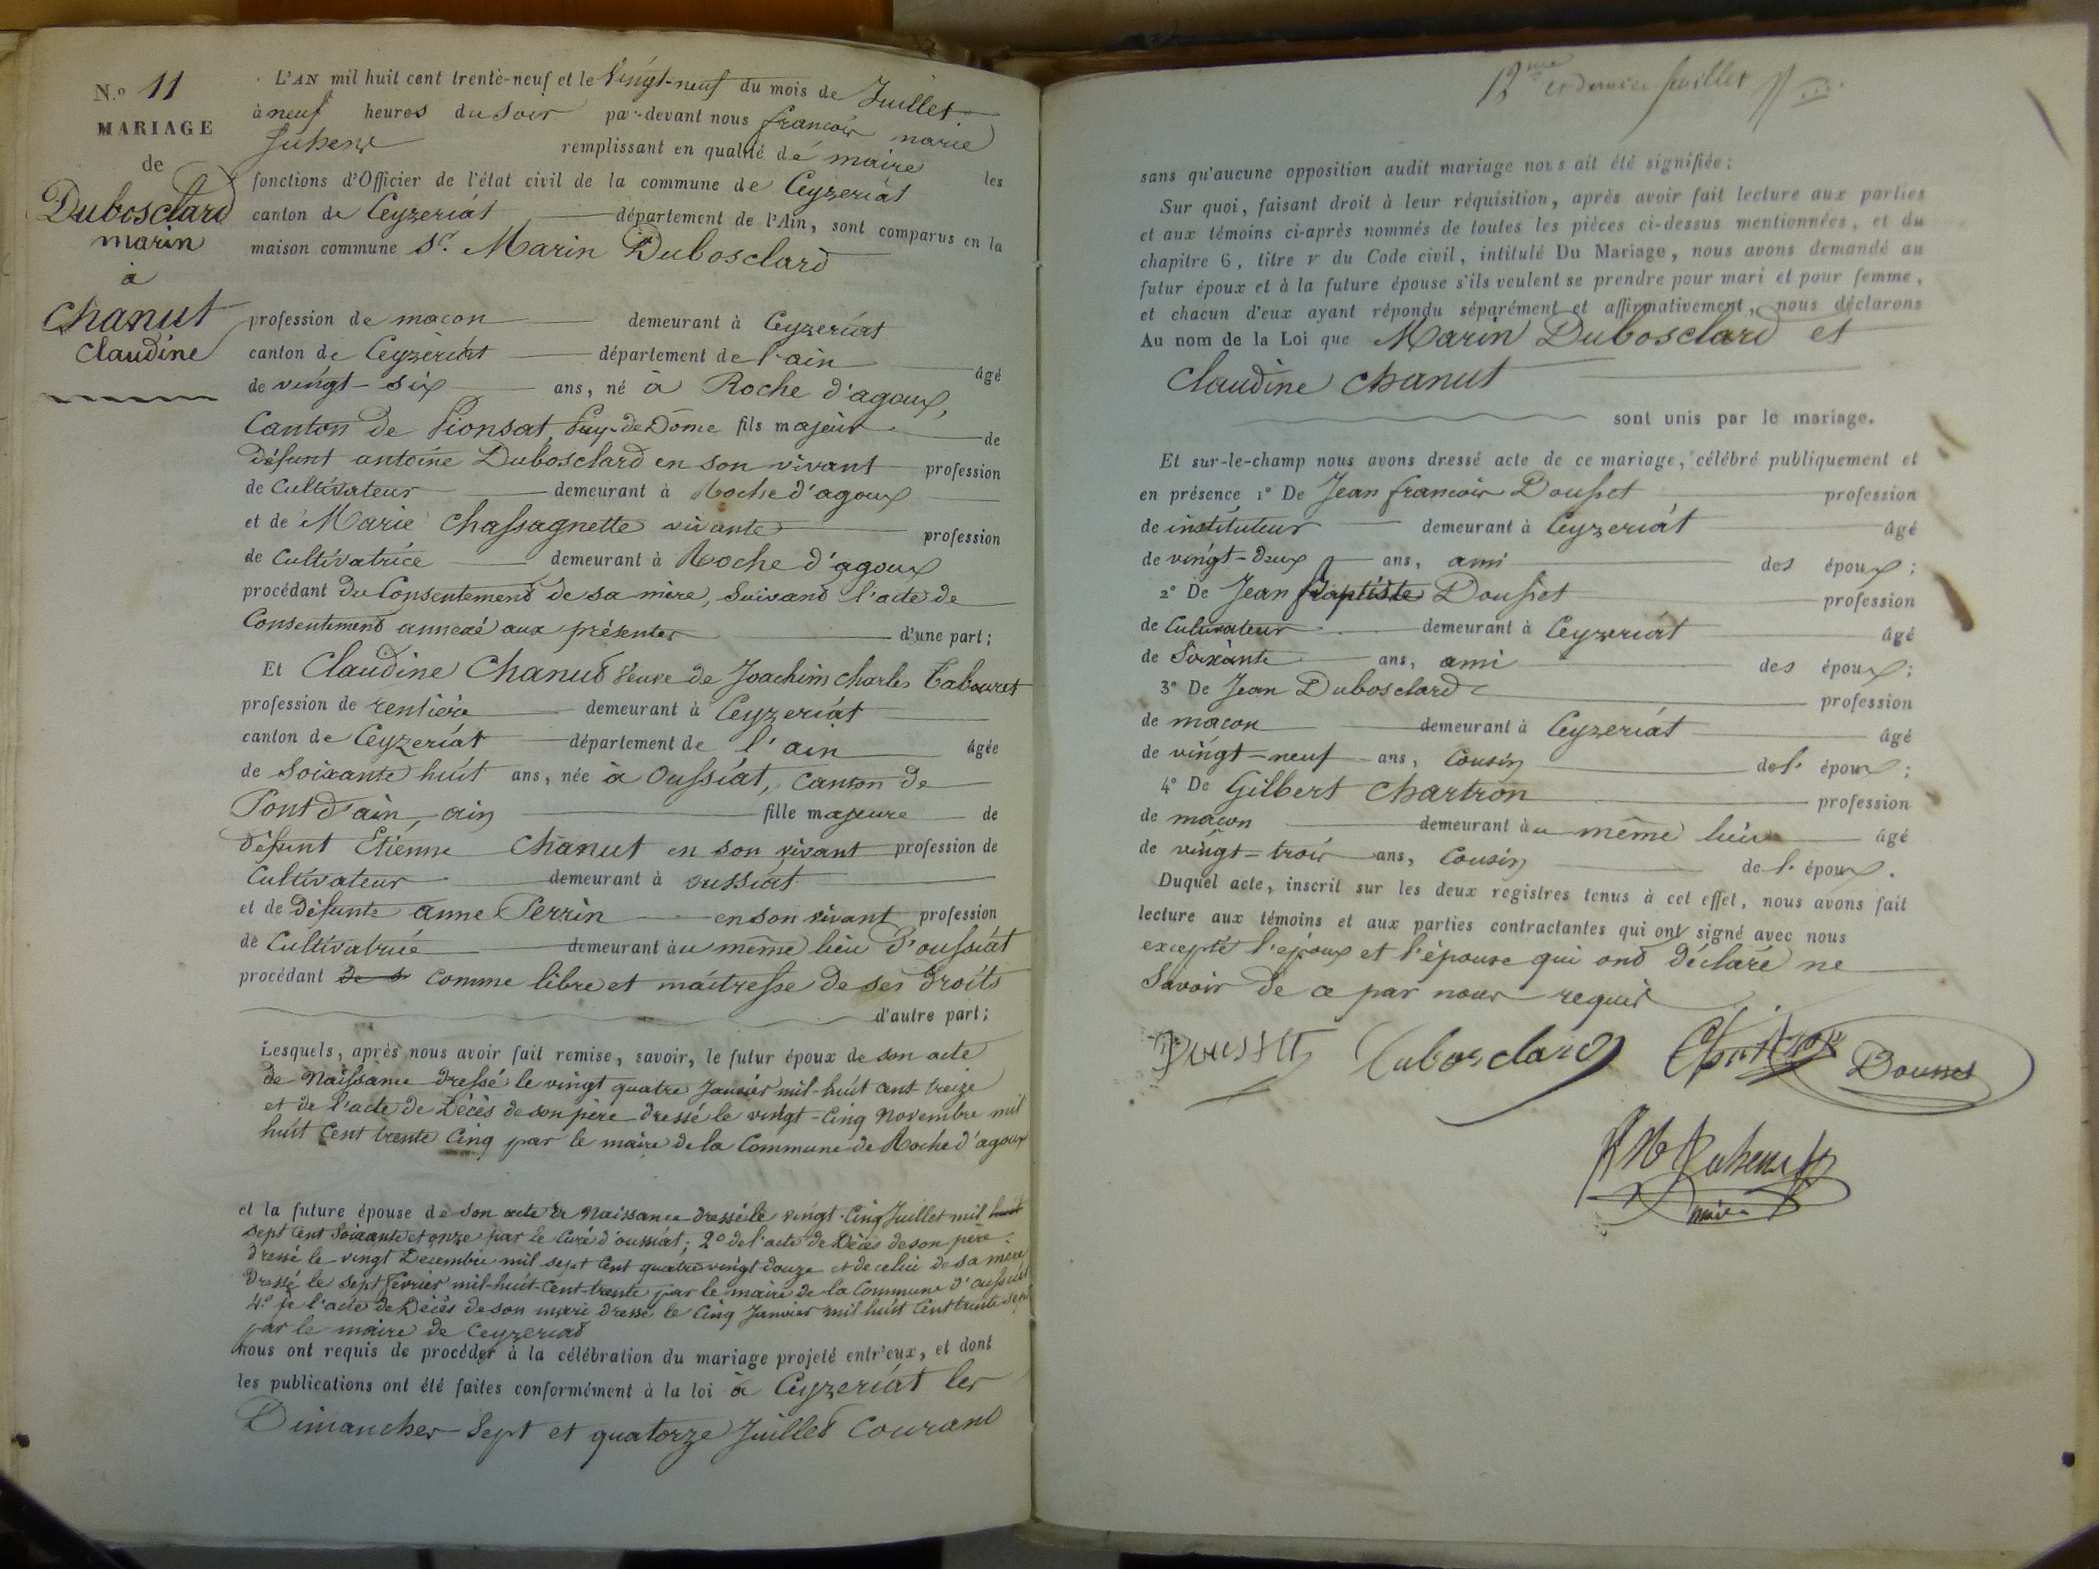 N.o 11
MARIAGE
de
Dubosclard
marin
à
Chanut
Claudine
L'AN mil huit cent trente-neuf et le vingt-neuf du mois de Juillet
à neuf heures du soir par-devant nous françois marie
remplissant en qualité de maire les
fonctions d'Officier de l'état civil de la commune de Ceyzeriat
canton de Ceyzeriat département de l'Ain, sont comparus en la
maison commune Sr. Marin Dubosclard
profession de macon demeurant à Ceyzeriat
canton de Ceyzeriat département de l'ain âgé
de vingt-six ans, né à Roche d'agoux,
Canton de Pionsat, Puy-de-Dôme fils majeur de
défunt antoine Dubosclard en son vivant profession
de Cultivateur demeurant à Roche d'agoux
et de Marie Chassagnette vivante profession
de Cultivatrice demeurant à Roche d'agoux
procédant du Consentement de sa mère, Suivant l'acte de
Consentement annexé aux présentes d'une part;
Et Claudine Chanut Veuve de Joachim Charles Tabouret
profession de rentière demeurant à Ceyzeriat
canton de Ceyzeriat département de l'ain âgée
de Soixante huit ans, née à Oussiat, Canton de
Pont d'ain, ain fille majeure de
défunt Etienne Chanut en son vivant profession de
Cultivateur demeurant à oussiat
et de défunte anne Perrin en son vivant profession
de Cultivatrice demeurant au même lieu d'oussiat
procédant de s comme libre et maîtresse de ses droits
d'autre part;
Lesquels, après nous avoir fait remise, savoir, le futur époux de son acte
de Naissance dressé le vingt quatre Janvier mil-huit cent treize
et de l'acte de Décès de son père dressé le vingt-cinq Novembre mil
huit Cent trente Cinq par le maire de la Commune de Roche d'agoux
et la future épouse de son acte de Naissance dressé le vingt-cinq Juillet mil huit
sept cent Soixante et onze par le Curé d'oussiat; 2o de l'acte de Décès de son père
dressé le vingt Decembre mil sept Cent quatre vingt douze et de celui de sa mère
dressé le sept fevrier mil-huit-Cent-trente par le maire de la Commune d'oussiat
4.o de l'acte de Décès de son mari dressé le Cinq Janvier mil huit Cent trente sept
par le maire de Ceyzeriat
nous ont requis de procéder à la célébration du mariage projeté entr'eux, et dont
les publications ont été faites conformément à la loi à Ceyzeriat les
Dimanches Sept et quatorze Juillet Courant
12me et dernier feuillet
sans qu'aucune opposition audit mariage nous ait été signifiée;
Sur quoi, faisant droit à leur réquisition, après avoir fait lecture aux parties
et aux témoins ci-après nommés de toutes les pièces ci-dessus mentionnées, et du
chapitre 6, titre v du Code civil, intitulé Du Mariage, nous avons demandé au
futur époux et à la future épouse s'ils veulent se prendre pour mari et pour femme,
et chacun d'eux ayant répondu séparément et affirmativement, nous déclarons
Au nom de la Loi que Marin Dubosclard et
Claudine Chanut
sont unis par le mariage.
Et sur-le-champ nous avons dressé acte de ce mariage, célébré publiquement et
en présence 1o De Jean françois Dousset profession
de instituteur demeurant à Ceyzeriat âgé
de vingt-deux ans, ami des époux;
2o De Jean Baptiste Dousset profession
de Cultivateur demeurant à Ceyzeriat âgé
de Soixante ans, ami des époux;
3o De Jean Dubosclard profession
de macon demeurant à Ceyzeriat âgé
de vingt-neuf ans, Cousin de l' époux;
4o De Gilbert Chartron profession
de maçon demeurant au même lieu âgé
de vingt-trois ans, Cousin de l' époux.
Duquel acte, inscrit sur les deux registres tenus à cet effet, nous avons fait
lecture aux témoins et aux parties contractantes qui ont signé avec nous
excepté l'époux et l'épouse qui ont déclaré ne
Savoir de ce par nous requis
Dousset Dubosclard Chartron Dousset
maire